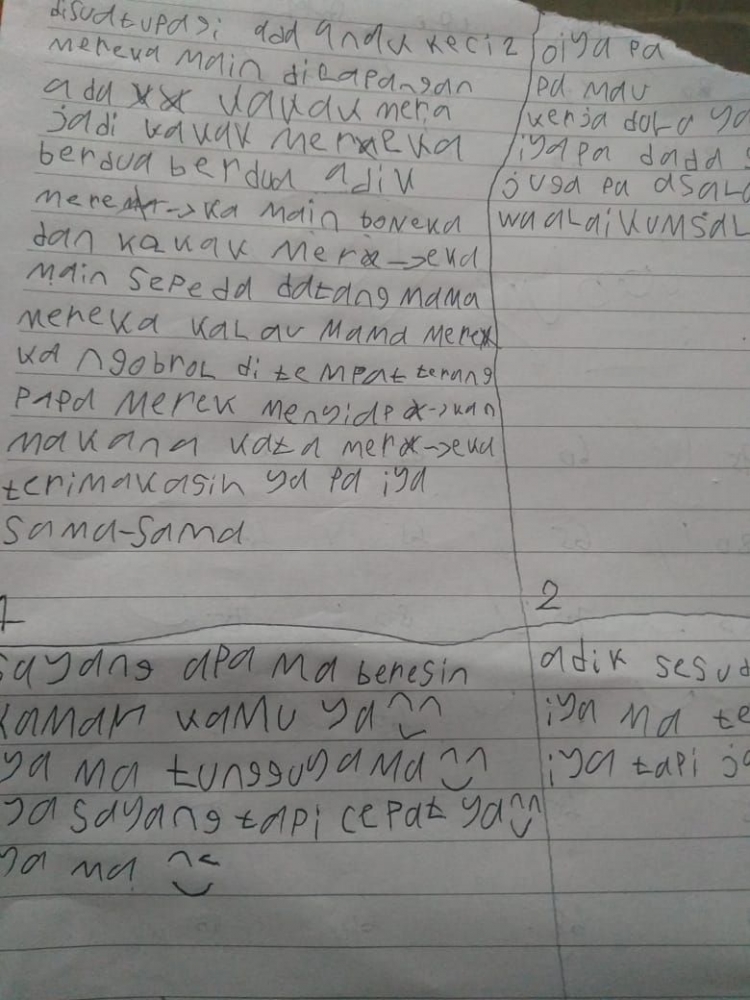 disuatupagi ada anack keci2
mereka main dilapangan
ada kakak mera
jadi kakak mereka
berdua berdua adik
mere->ka main boneka
dan kakak mer->eka
main sepeda datang mama
mereka kalau mama merek
ka ngobrol di tempat terang
papa merek menyiap->kan
makana kata mer->eka
terimakasih ya pa iya
sama-sama
oiya pa
pa mau
kerja dolo ya
iya pa dada
juga pa asala
waalaikumsal
1
sayang apa ma beresin
kamar kamu ya
ya ma tungguyama
ya sayang tapi cepat ya
ya ma
2
adik sesud
iya ma te
iya tapi ja